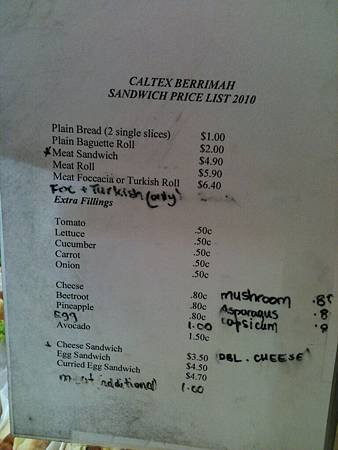 CALTEX BERRIMAH
SANDWICH PRICE LIST 2010
Plain Bread (2 single slices) $1.00
Plain Baguette Roll $2.00
Meat Sandwich $4.90
Meat Roll $5.90
Meat Foccacia or Turkish Roll $6.40
Foc + Turkish (only)
Extra Fillings
Tomato .50c
Lettuce .50c
Cucumber .50c
Carrot .50c
Onion .50c
Cheese .80c mushroom
Beetroot .80c Asparagus
Pineapple .80c capsicum
Egg 1.00
Avocado 1.50c
Cheese Sandwich $3.50 DBL. CHEESE
Egg Sandwich $4.50
Curried Egg Sandwich $4.70
meat additional 1.00